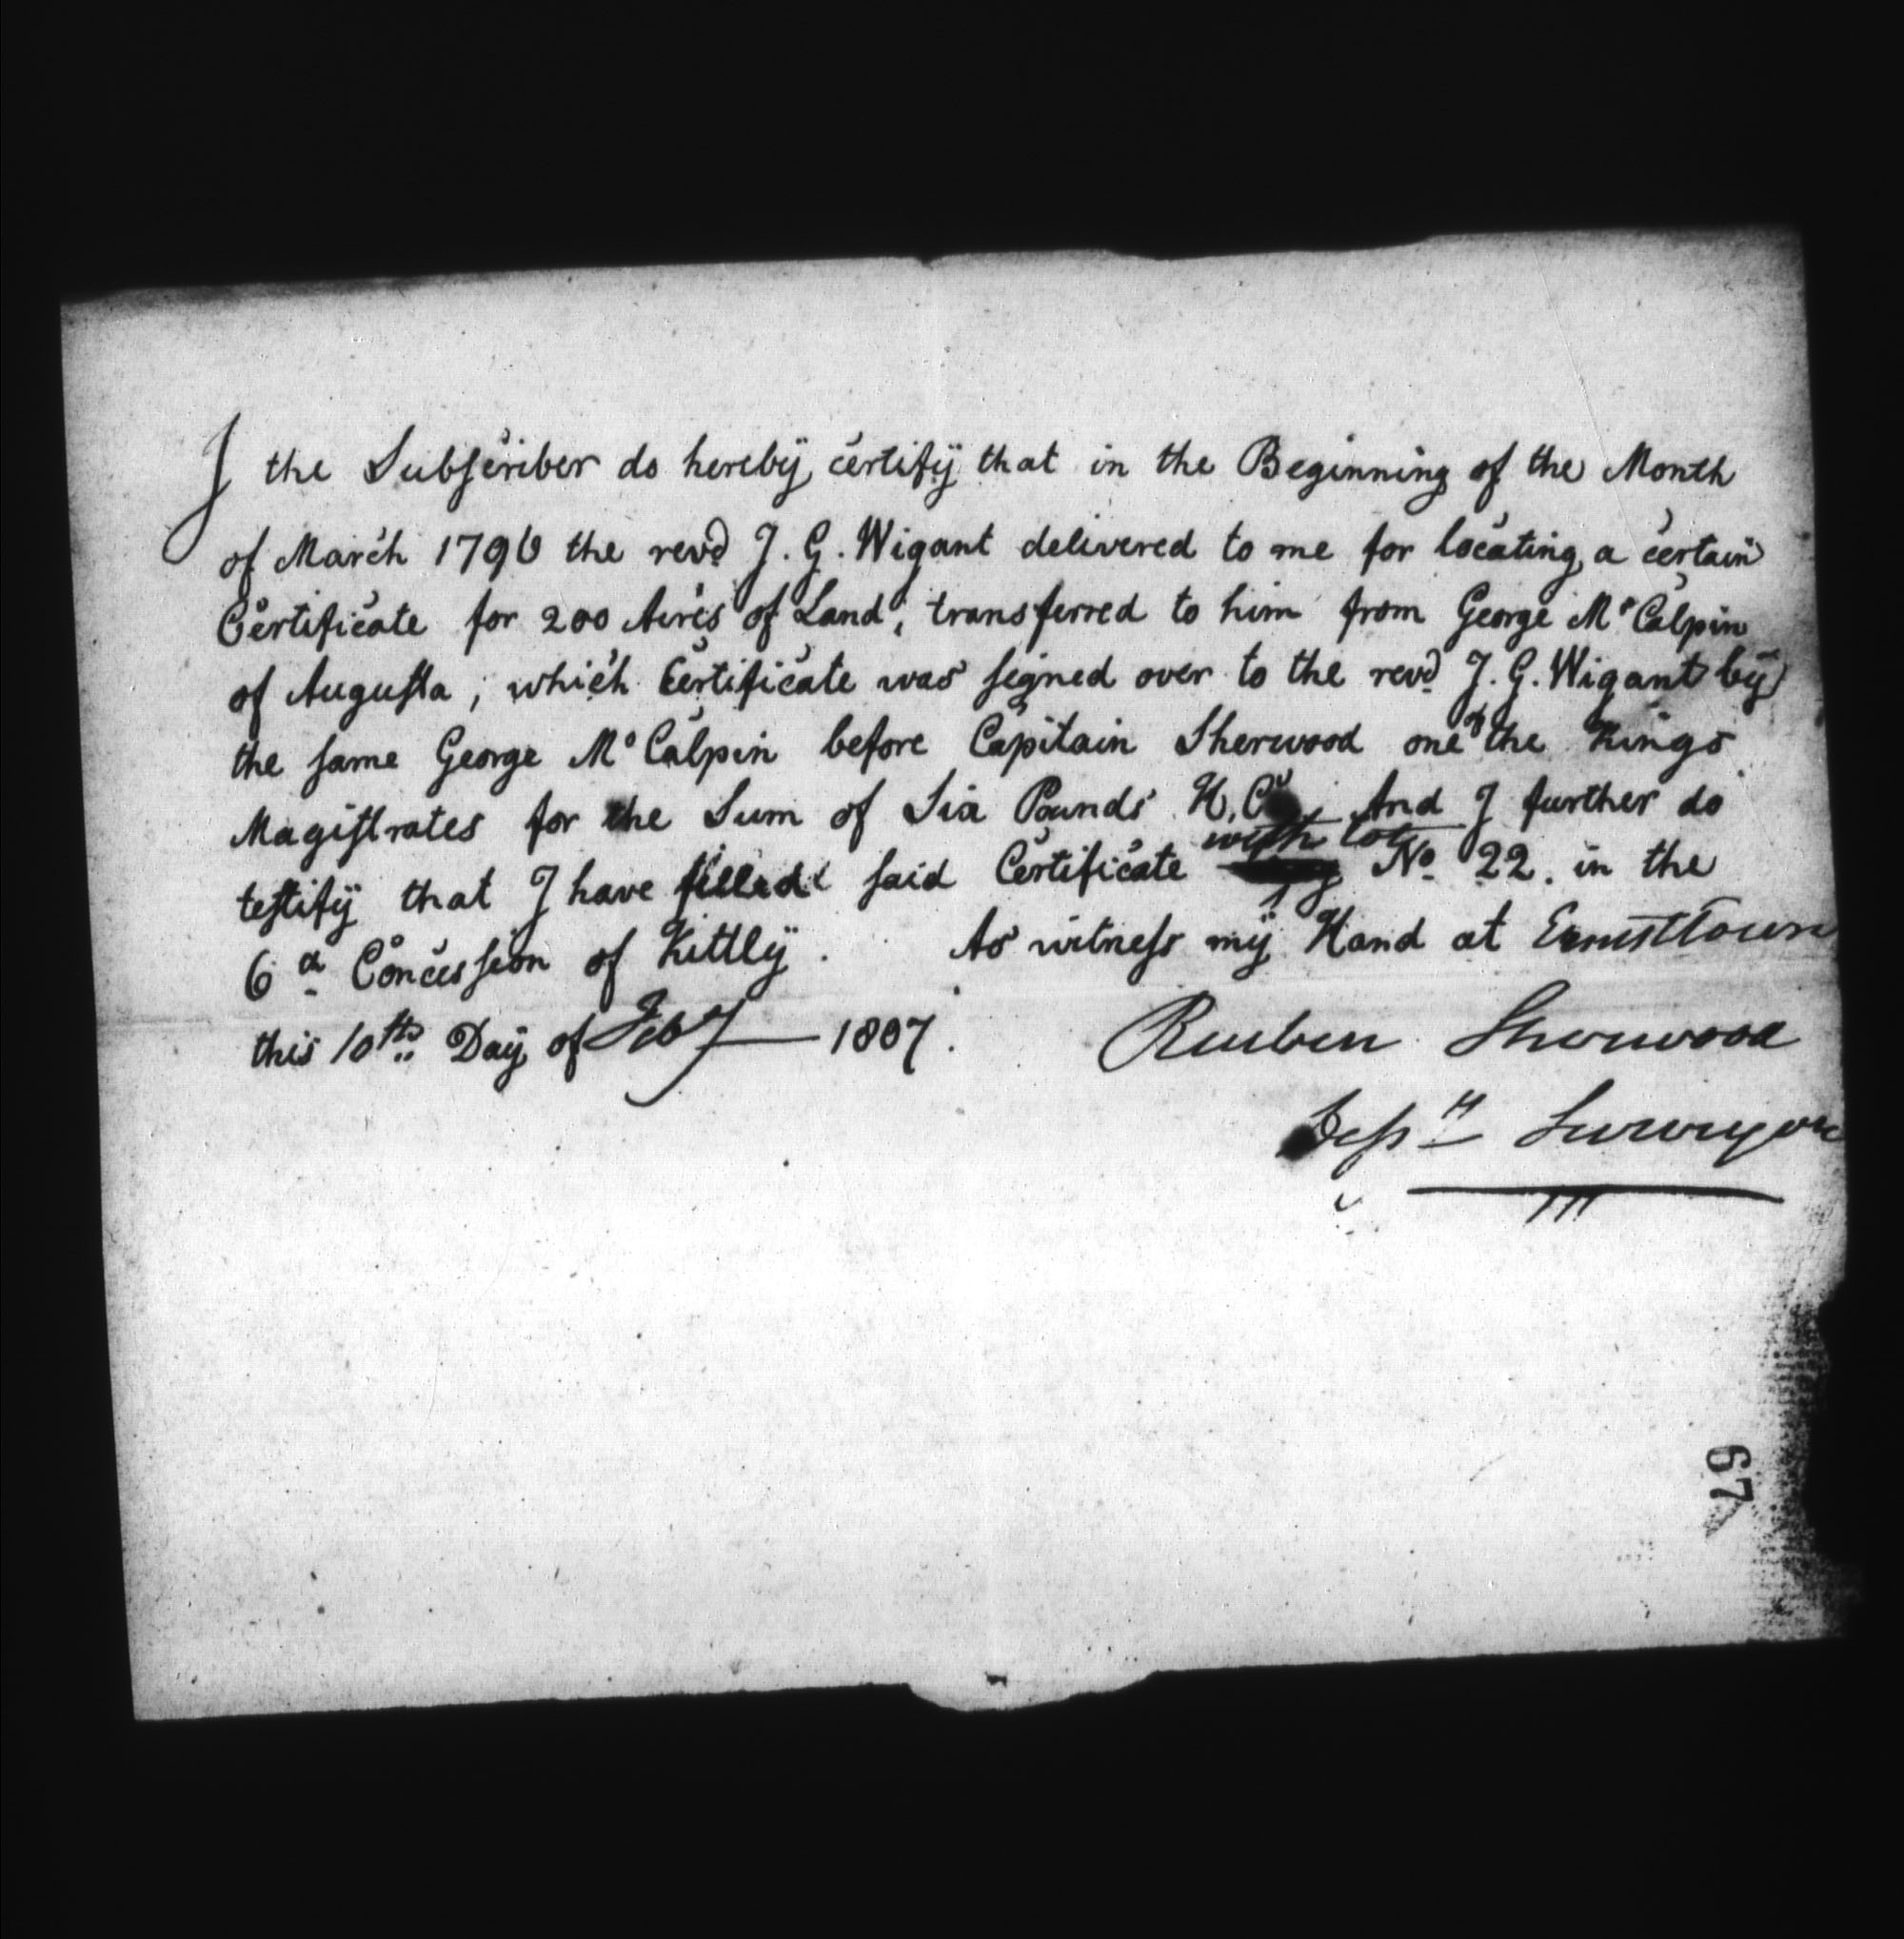 I the Subscriber do hereby certify that in the Beginning of the Month
of March 1796 the revd J. G. Wigant delivered to me for locating a certain
Certificate for 200 Acres of Land, transferred to him from George Mc Calpin
of Augusta, which Certificate was signed over to the revd J. G. Wigant by
the same George Mc Calpin before Capitain Sherwood one of the Kings
Magistrates for the Sum of Six Pounds H. Cy And I further do
testify that I have filled said Certificate with lot No 22. in the
6th Concession of Kittly. As witness my Hand at Ernesttown
this 10th Day of Feby 1807.
Reuben Sherwood
Depy Surveyor
67